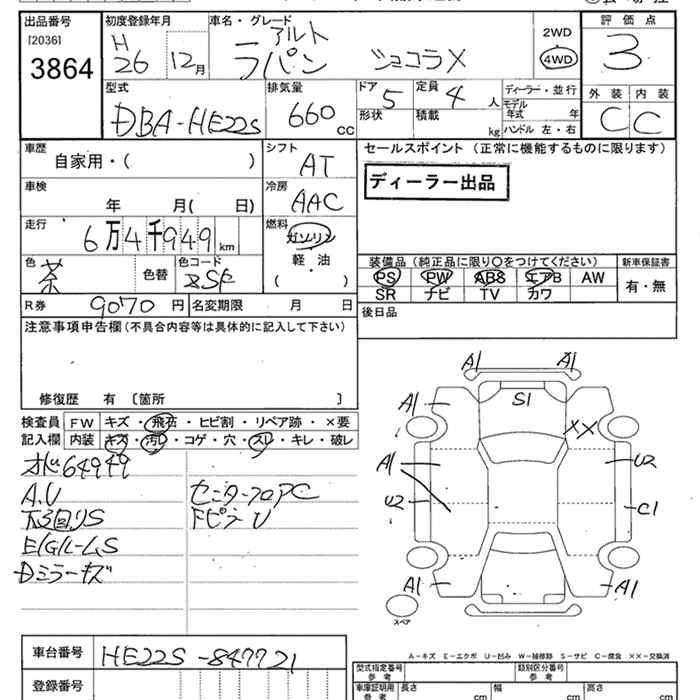 出品番号
[2036]
3864
初度登録年月
H
26 12月
車名・グレード
アルト
ラパン ショコラX
2WD
4WD
評価点
3
外装 内装
C C
型式
DBA-HE22S
排気量
660 CC
ドア
5
形状
定員
4 人
積載 kg
ディーラー・並行
モデル
年式 年
ハンドル 左・右
車歴
自家用・( )
シフト
AT
セールスポイント (正常に機能するものに限ります)
ディーラー出品
車検
年 月( 日)
冷房
AAC
走行
6万4千949km
燃料
ガソリン
軽・油
( )
色
茶
色替
色コード
ZSF
装備品(純正品に限り○をつけてください)
PS PW ABS エアB AW
SR ナビ TV カワ
新車保証書
有・無
R券 9070 円
名変期限 月 日
後日品
注意事項申告欄(不具合内容等は具体的に記入して下さい)
修復歴 有 〔箇所 〕
検査員
記入欄
FW キズ・飛石・ヒビ割・リペア跡・×要
内装 キズ・汚レ・コゲ・穴・スレ・キレ・破レ
64949
A.U
下回りS
E/Gルーム S
Dミラーキズ
センターフロアC
FピラーU
A1 A1
A1
S1
XX
A1
U2
U2
C1
A1
A1
スペア
A-キズ E-エクボ U-凹み W-補修跡 S-サビ C-腐食 ××-交換済
車台番号
HE22S-847721
登録番号
型式指定番号
参考
類別区分番号
参考
車庫証明用
参考
長さ cm
幅 cm
高さ cm